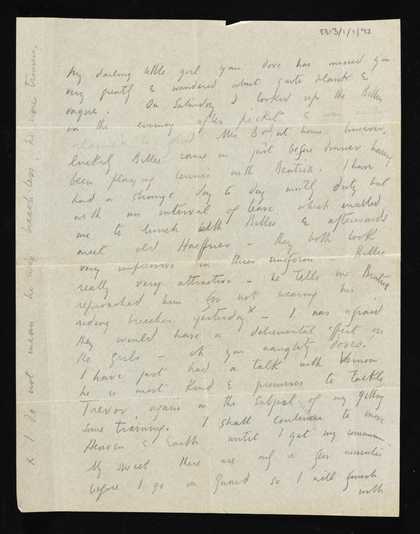 My darling little girl your dove has missed you
very greatly & wandered about quite blank &
vague. On Saturday I looked up the Billies
in the evening after picket &
Mrs B at home however,
luckily Billie came in just before dinner having
been playing tennis with Beatrice. I have
had a strange day to day until duty but
with an interval of leave which enabled
me to lunch with Billie & afterwards
meet old Haeffner - they both look
very impressive in their uniform Billie
really very attractive - he tells me Beatrice
reproached him for not wearing his
riding breeches yesterday x - I was afraid
they would have a detrimental effect on
the girls - oh you naughty doves.
I have just had a talk with Vernon
he is most kind & promises to tackle
Trevor again on the subject of my getting
some training. I shall continue to move
Heaven & Earth until I get my
My sweet there are only a few minutes
before I go on guard so I will finish
with
x I do not mean he was breechless he wore trousers.